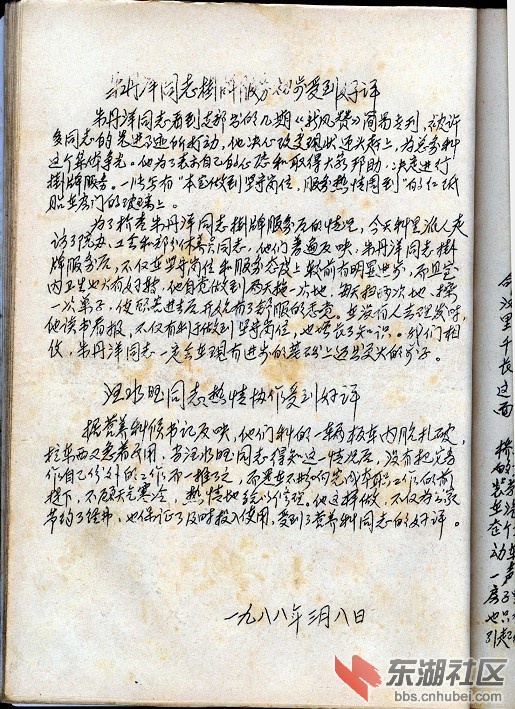 朱丹洋同志掛牌服务初步受到好评
朱丹洋同志看到支部书的几期《新风赞》简易专刊，被许
多同志的先进事迹所打动，他决心改变现状迎头赶上，为总务科
这个集体争光。他为了表示自己的信心和取得大家帮助，决定进行
掛牌服务。一张写有“本室做到坚守岗位，服务热情周到”的红纸
贴在房门的玻璃上。
为了检查朱丹洋同志掛牌服务后的情况，今天科里派人走
访了院办、工会和部分休养员同志，他们普遍反映，朱丹洋同志掛
牌服务后，不仅在坚守岗位和服务态度上较前有明显进步，而且室
内卫生也大有好转，他自觉做到两天拖一次地，每天扫两次地、擦
一次桌子，使所去进去后开始有了舒服的感觉。在没有人去理发时，
他读书看报，不仅有利于做到坚守岗位，也增长了知识。我们相
信，朱丹洋同志一定会在现有进步的基础上迈出更大的步子。
汪水旺同志热情协作受到好评
据营养科侯书记反映，他们科的一辆板车内胎扎破，
拉东西又急着用，当汪水旺同志得知这一情况后，没有把它当
作自己份外的工作而一推了之，而是在不影响完成本职工作的前
提下，不顾天气寒冷，热情地给以修理。他这样做，不仅为公家
节约了经费，也保证了及时投入使用，受到了营养科同志的好评。
一九八八年三月八日
东湖社区
bbs.cnhubei.com